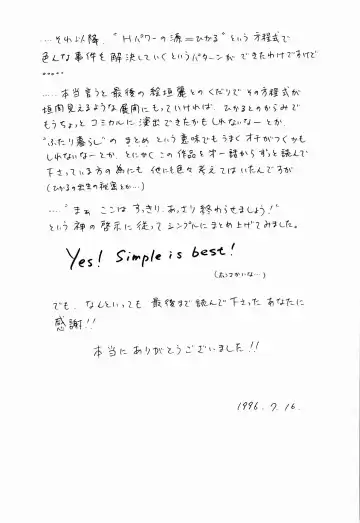 ....それ以降、"Hパワーの源=ひかる"という方程式で
色んな事件を解決していくというパターンが できたわけですけど
.....
.....本当言うと最後の絵垣麗とのくだりで その方程式が
垣間見えるような展開にもっていければ、ひかるとのからみで
もうちょっとコミカルに演出できたかもしれないなーとか、
"ふたり暮らし"の まとめ という意味でもうまくオチがつくかも
しれないなーとか、とにかく この作品を オー諸からずっと読んで
下さっている方の為にも 他にも色々考えてはいたんですが
(ひかるの出生の秘密とか...)
...."まぁ ここは すっきり、あっさり 終わらせましょう!"
という神の啓示に従って シンプルにまとめ上げてみました。
Yes! Simple is best!
でも、なんといっても 最後まで読んで下さった あなたに
感謝!!
本当にありがとうございました!!
1996.7.16.